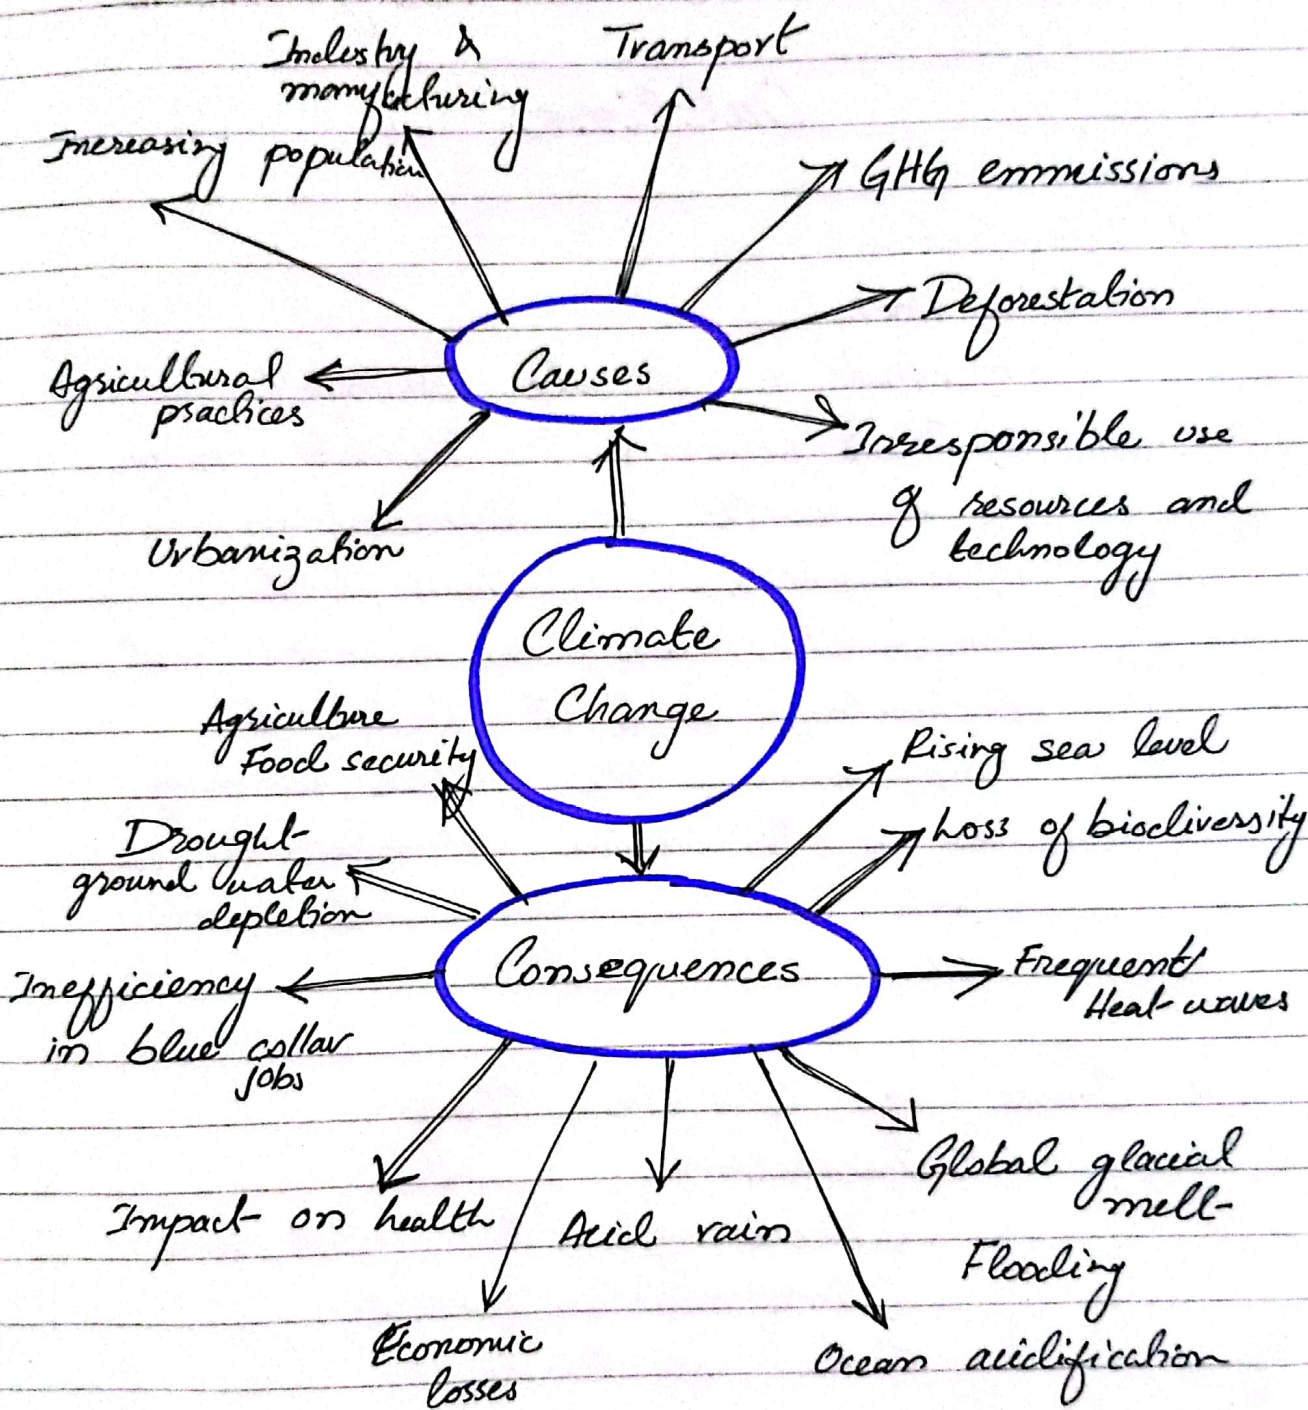 Industry &
manufacturing
Transport
Increasing population
GHG emmissions
Deforestation
Causes
Agricultural
practices
Irresponsible use
of resources and
technology
Urbanization
Climate
Change
Agriculture
Food security
Rising sea level
Loss of biodiversity
Drought
ground water
depletion
Consequences
Frequent
Heat waves
Inefficiency
in blue collar
jobs
Global glacial
melt
Impact on health
Acid rain
Flooding
Economic
losses
Ocean acidification